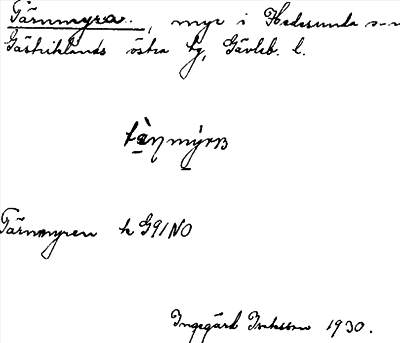 Tärnmyra, myr i Hedesunda s-n
Gästriklands östra tg, Gävleb. l.
tæ̀ṇmýra
Tärnmyren k G91NO
Ingegärd 1930.